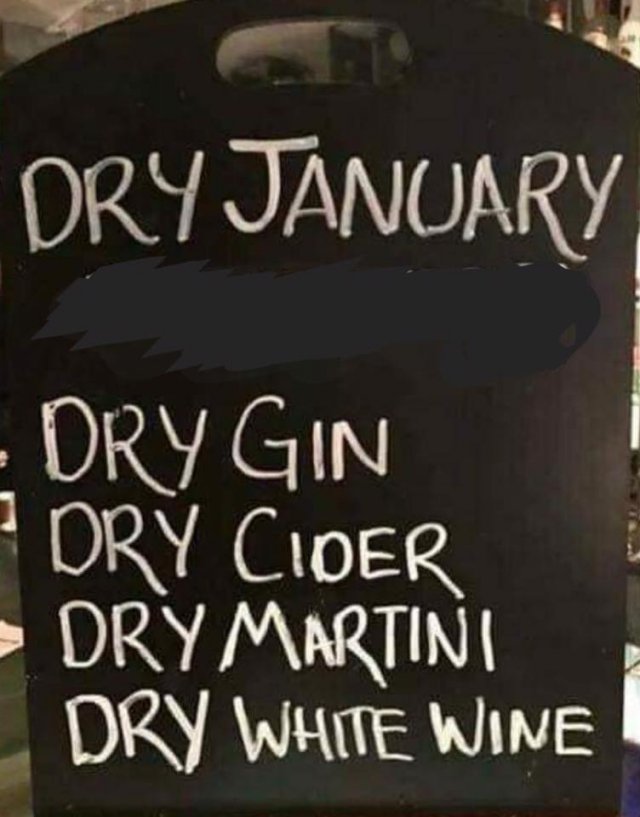 DRY JANUARY
DRY GIN
DRY CIDER
DRY MARTINI
DRY WHITE WINE